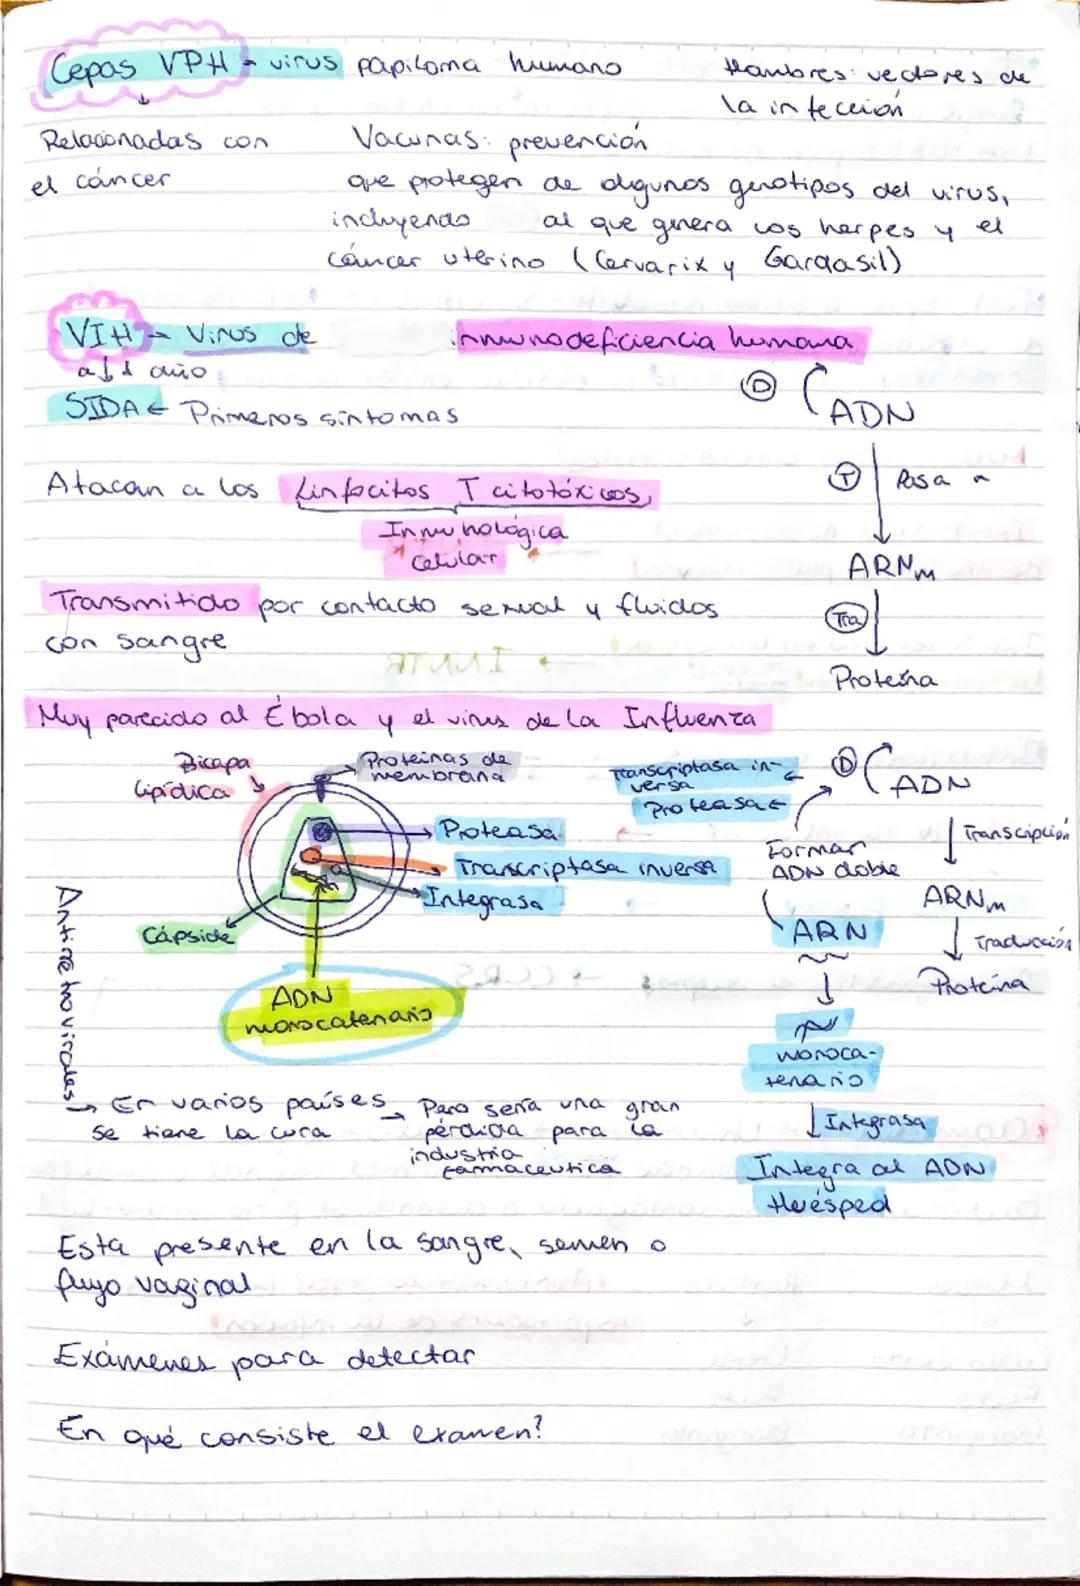 Cepas VPH - virus papiloma humano
Hombres: vectores de
la infección
Relacionadas con
el cáncer
Vacunas: prevención
que protegen de algunos genotipos del virus,
incluyendo al que genera los herpes y el
cáncer uterino (Cervarix y Gardasil)
VIH - Virus de inmunodeficiencia humana
a ↓ 1 año
SIDA ← Primeros síntomas
Atacan a los Linfocitos T citotóxicos,
Inmunológica
Celular
Transmitido por contacto sexual y fluidos
con sangre
D ADN
T Pasa a
ARNm
Tra
Proteína
Muy parecido al Ébola y el virus de la Influenza
Bicapa
lipídica
Proteínas de
membrana
Proteasa
Transcriptasa inversa
Integrasa
Cápside
ADN
monocatenario
Transcriptasa in-
versa
Proteasa
Formar
ADN doble
ARN
monoca-
tenario
Integrasa
Integra al ADN
Huésped
D ADN
Transcripción
ARNm
Traducción
Proteína
Antirretrovirales
→ En varios países
se tiene la cura
→ Pero sería una gran
pérdida para la
industria
farmacéutica
Esta presente en la sangre, semen o
flujo vaginal
Exámenes para detectar
En qué consiste el examen?